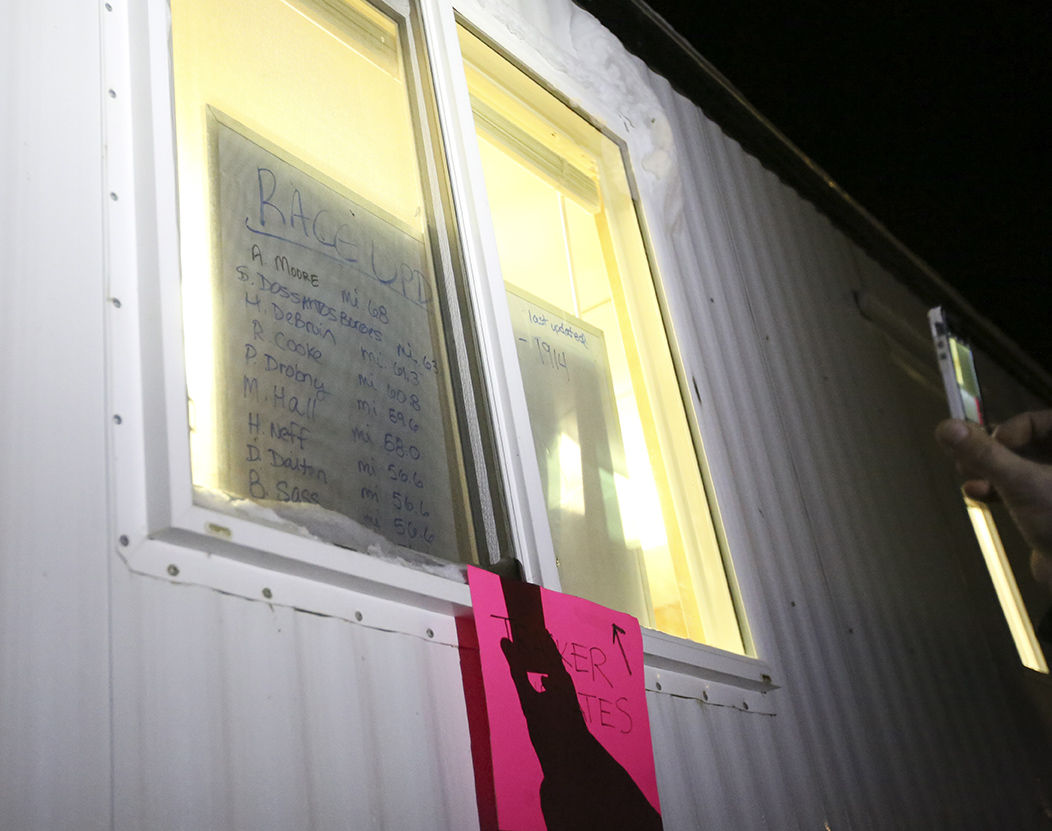 RACE UPD
A. MOORE mi 68
S. DosSANTOSBORGES mi 63
H. DeBruin mi 61.3
R. Cooke mi 60.8
P. Drobny mi 59.6
M. Hall mi 58.0
H. Neff mi 56.6
D. Dalton mi 56.6
B. Sass mi 56.6
last updated:
- 1914
T KER
TES